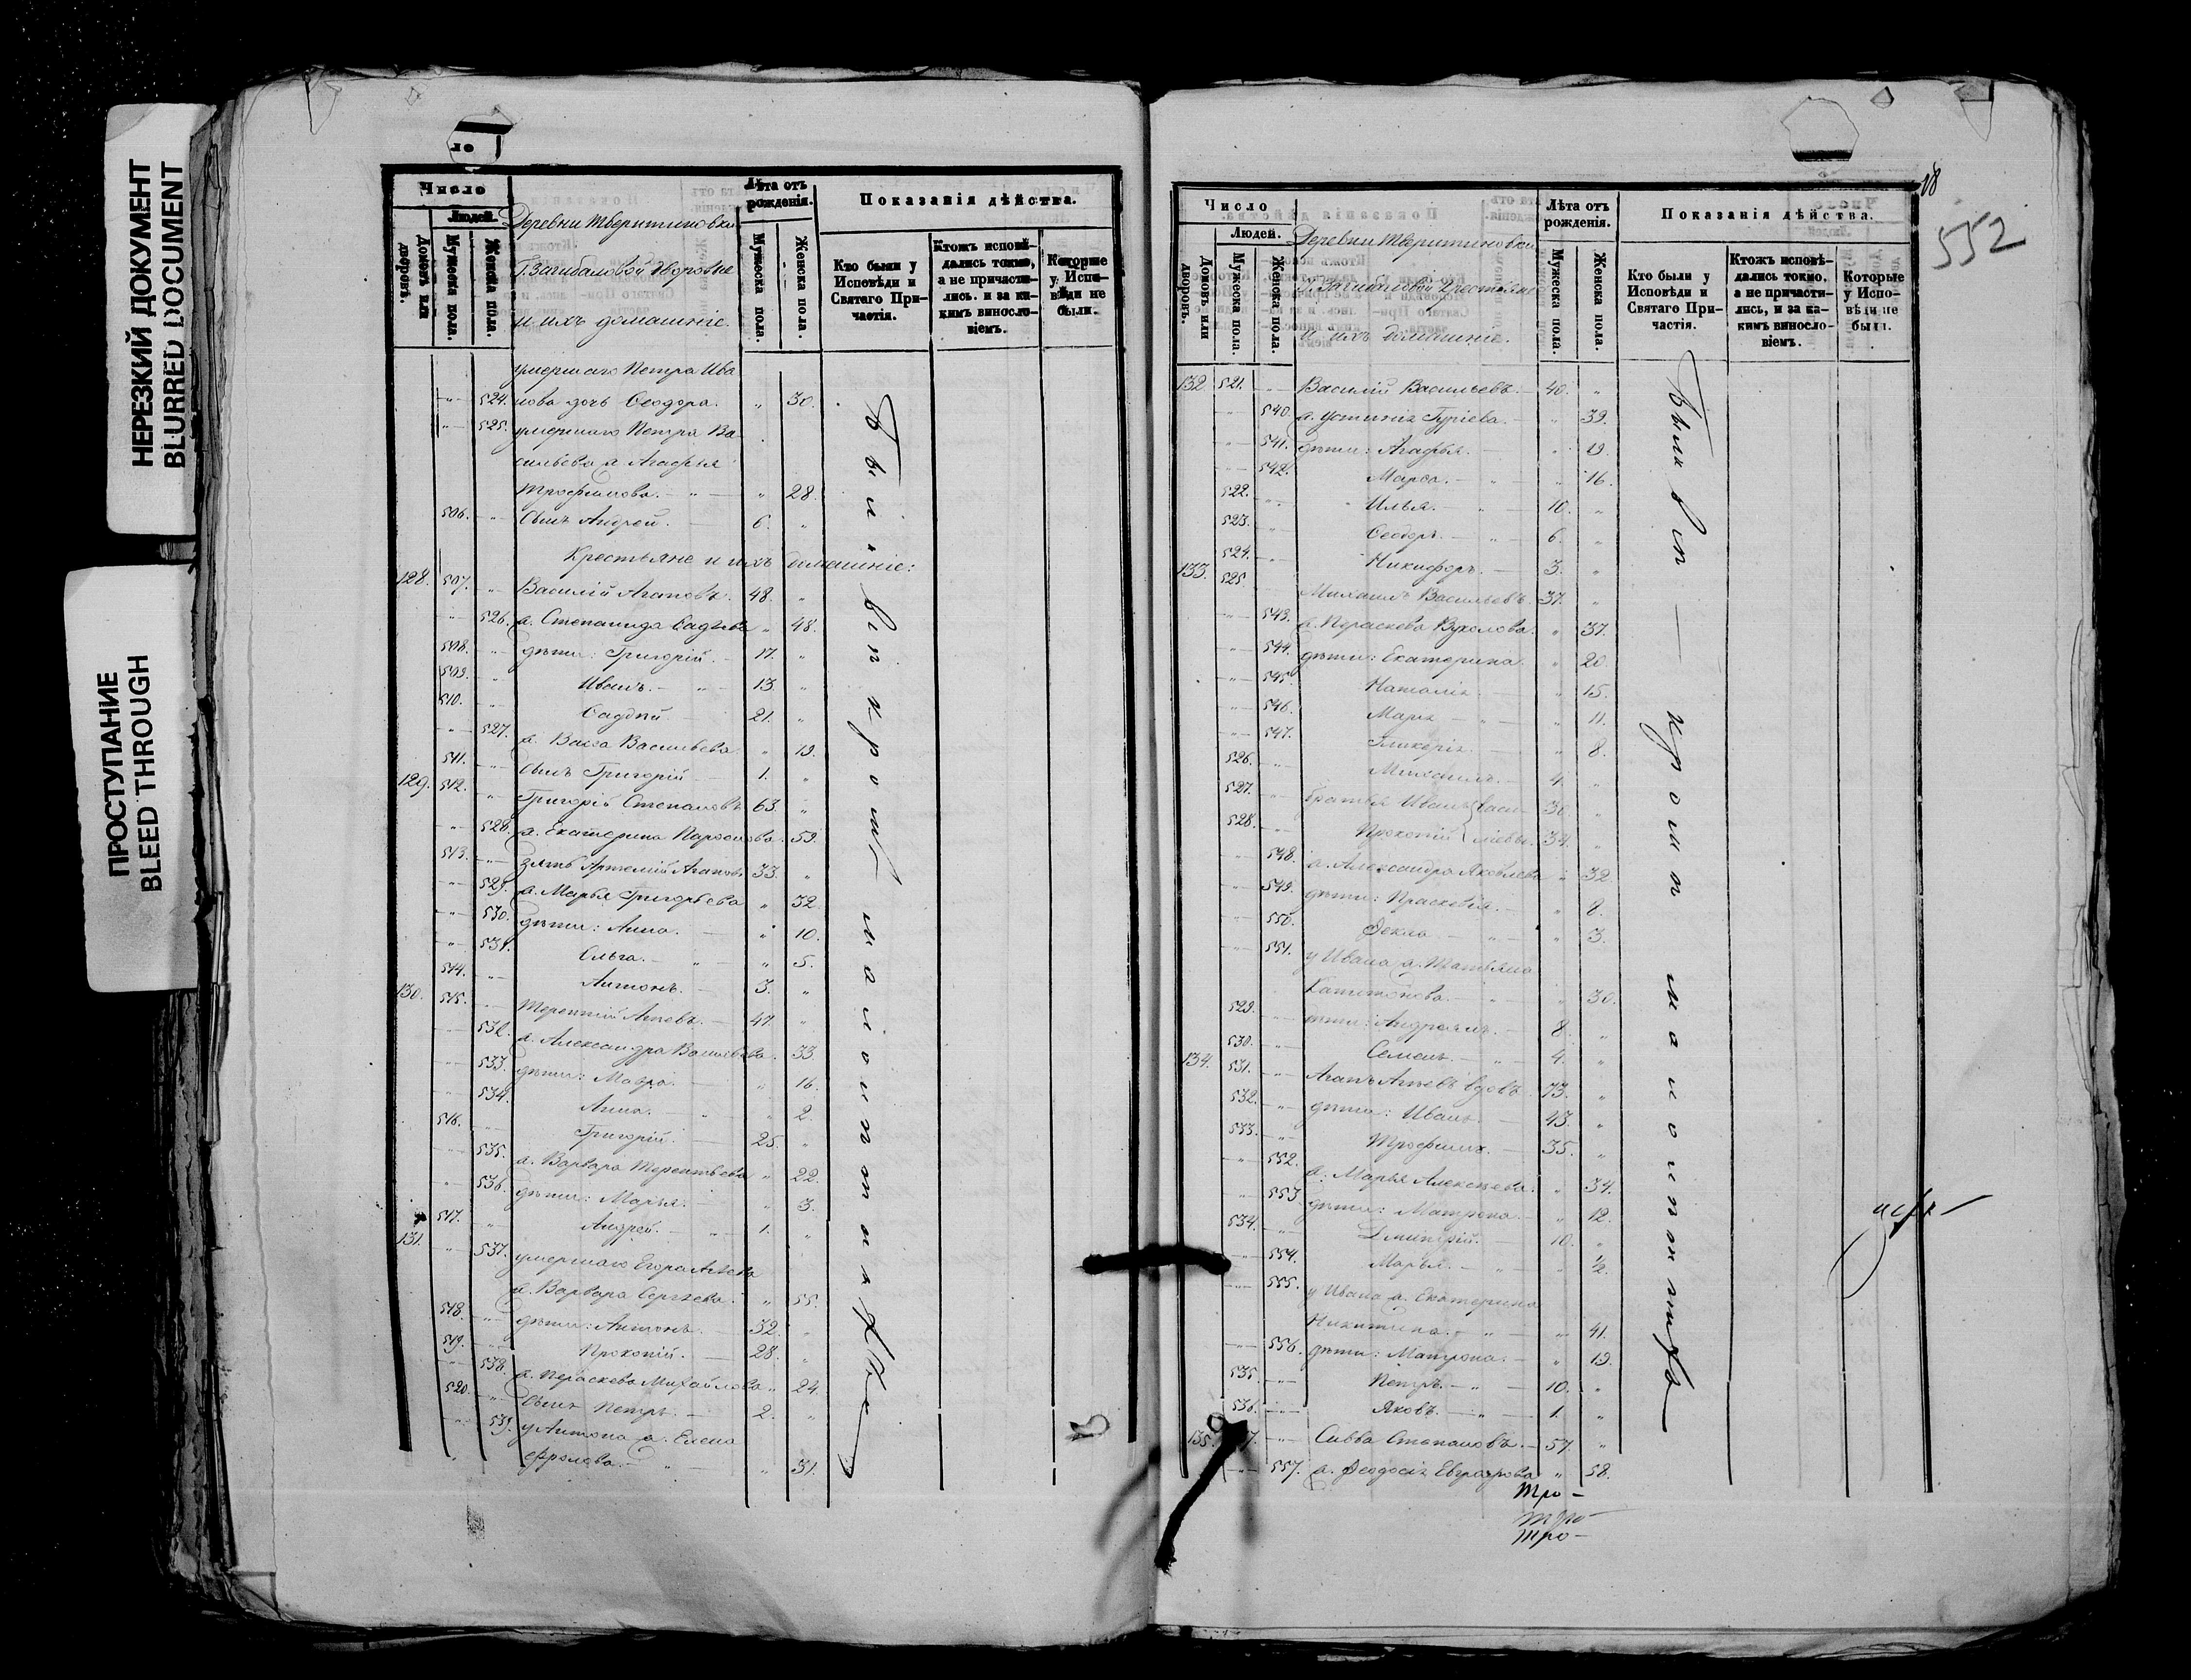 НЕРЕЗКИЙ ДОКУМЕНТ
BLURRED DOCUMENT
ПРОСТУПАНИЕ
BLEED THROUGH
Число
Людей.
Домовъ или дворовъ.
Мужеска пола.
Женска пола.
Деревни Тверитиновки
Г. Загибаловой дворовые
и ихъ домашніе.
Лѣта отъ рожденія.
Мужеска пола.
Женска пола.
Показанія дѣйства.
Кто были у Исповѣди и Святаго Причастія.
Ктожъ исповѣдались токмо, а не причастились. и за какимъ винословіемъ.
Которые у Исповѣди не были.
умершаго Петра Ива
524. нова дочь Ѳеодора. 30.
525. умершаго Петра Ва
сильева ж. Агафья
Трофимова. 28.
506. сынъ Андрей. 6.
Крестьяне и ихъ домашніе:
128. 507. Василій Агаповъ. 48.
526. ж. Степанида 48.
508. дѣти: Григорій. 17.
509. Иванъ. 13.
510. 21.
527. ж. Васса Васильева 19.
511. сынъ Григорій 1.
129. 512. Григорій Степановъ 63.
528. ж. Екатерина 59.
513. зять Артемій Агаповъ 33.
529. ж. Марья Григорьева 32.
530. дѣти: Анна. 10.
531. Ольга. 5.
514. Антонъ. 3.
130. 515. Терентій 47.
532. ж. Александра Васильева. 33.
533. дѣти: Мавра. 16.
534. Анна. 2.
516. Григорій. 25.
535. ж. Варвара Терентьева 22.
536. дѣти: Марья. 3.
517. Андрей. 1.
131. 537. умершаго Егора
ж. Варвара Сергѣева. 55.
518. дѣти: Антонъ. 32.
519. Прокопій. 28.
538. ж. Параскева Михайлова 24.
520. сынъ Петръ. 2.
539. у Антона ж. Елена
Фролова. 31.
Были вси кромѣ малолѣтнихъ
18
552
Число
Людей.
Домовъ или дворовъ.
Мужеска пола.
Женска пола.
Деревни Тверитиновки
Г. Загибаловой Крестьяне
и ихъ домашніе.
Лѣта отъ рожденія.
Мужеска пола.
Женска пола.
Показанія дѣйства.
Кто были у Исповѣди и Святаго Причастія.
Ктожъ исповѣдались токмо, а не причастились, и за какимъ винословіемъ.
Которые у Исповѣди не были.
132. 521. Василій Васильевъ. 40.
540. ж. Устинія Гуріева. 39.
541. дѣти: Агафья. 19.
542. Марѳа. 16.
522. Илья. 10.
523. Ѳеодоръ. 6.
524. Никифоръ. 3.
133. 525. Михаилъ Васильевъ. 37.
543. ж. Параскева Вуколова. 37.
544. дѣти: Екатерина 20.
545. Наталія. 15.
546. Марія 11.
547. Гликерія. 8.
526. Михаилъ. 4.
527. братья Иванъ Васи- 30.
528. Прокопій льевы. 34.
548. ж. Александра Яковлева 32.
549. дѣти: Прасковія. 8.
550. Ѳекла 3.
551. у Ивана ж. Татьяна
Капитонова. 30.
529. дѣти: Андреянъ. 8.
530. Семенъ. 4.
134. 531. Агапъ вдовъ. 73.
532. дѣти: Иванъ. 43.
533. Трофимъ. 35.
552. ж. Марья Алексѣева. 34.
553. дѣти: Матрона. 12.
534. Дмитрій. 10.
554. Марья. ½.
555. у Ивана ж. Екатерина
Никитина. 41.
556. дѣти: Матрона. 19.
535. Петръ. 10.
536. Яковъ. 1.
135. Савва Степановъ. 57.
557. ж. Ѳеодосія Евграфова 58.
Были вси кромѣ малолѣтнихъ
Тро-
Тро-
Тро-